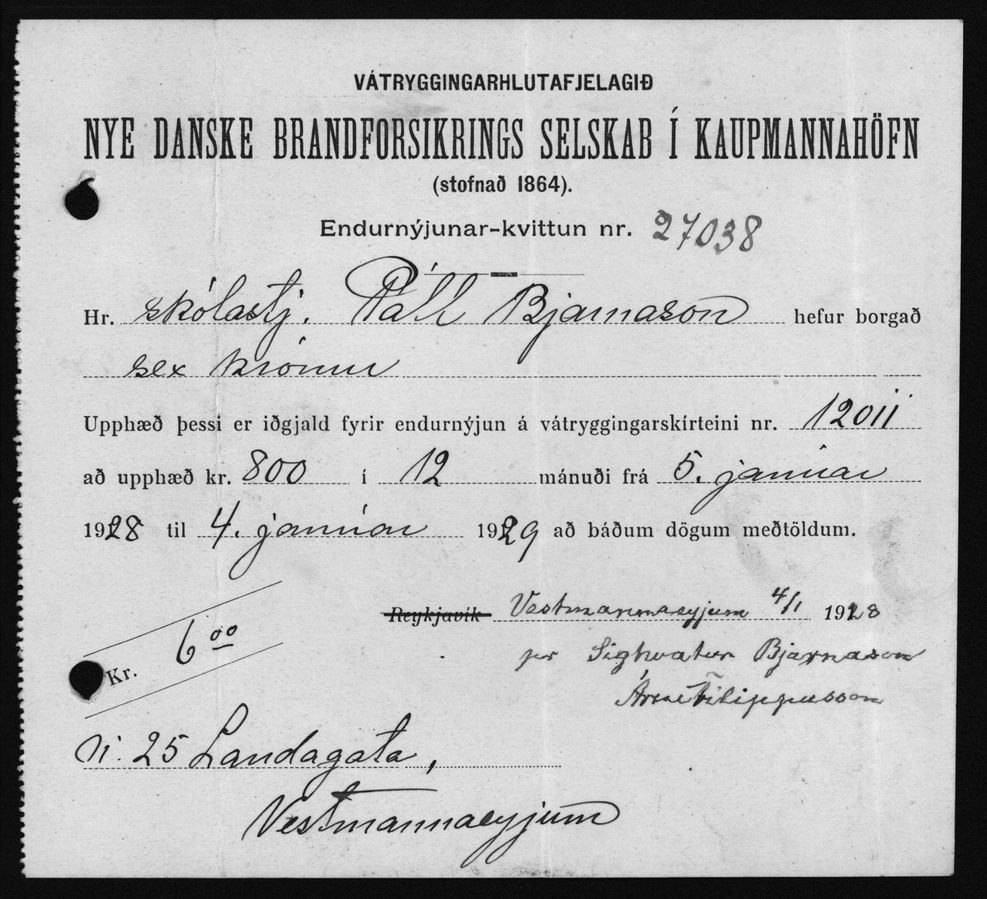 VÁTRYGGINGARHLUTAFJELAGIÐ
NYE DANSKE BRANDFORSIKRINGS SELSKAB Í KAUPMANNAHÖFN
(stofnað 1864).
Endurnýjunar-kvittun nr. 27038
Hr. skólastj. Páll Bjarnason hefur borgað
sex krónur
Upphæð þessi er iðgjald fyrir endurnýjun á vátryggingarskírteini nr. 12011
að upphæð kr. 800 í 12 mánuði frá 5. janúar
1928 til 4. janúar 1929 að báðum dögum meðtöldum.
Reykjavík Vestmannaeyjum 4/1 1928
Kr. 6 00
pr Sighvatur Bjarnason
Árni Filippusson
25 Landagata,
Vestmannaeyjum